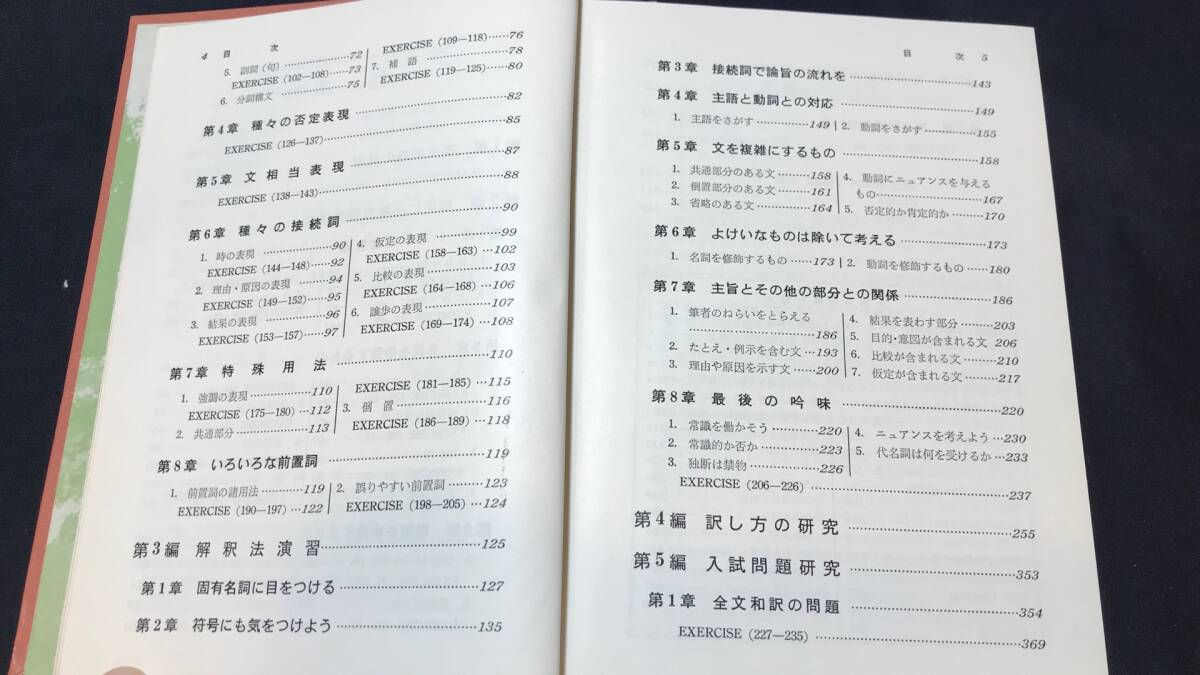 4 目 次
5. 副詞（句） ……72
EXERCISE (102—108) ……73
6. 分詞構文 ……75
EXERCISE (109—118) ……76
7. 補語 ……78
EXERCISE (119—125) ……80
第4章 種々の否定表現 ……82
EXERCISE (126—137) ……85
第5章 文相当表現 ……87
EXERCISE (138—143) ……88
第6章 種々の接続詞 ……90
1. 時の表現 ……90
EXERCISE (144—148) ……92
2. 理由・原因の表現 ……94
EXERCISE (149—152) ……95
3. 結果の表現 ……96
EXERCISE (153—157) ……97
4. 仮定の表現 ……99
EXERCISE (158—163) ……102
5. 比較の表現 ……103
EXERCISE (164—168) ……106
6. 譲歩の表現 ……107
EXERCISE (169—174) ……108
第7章 特殊用法 ……110
1. 強調の表現 ……110
EXERCISE (175—180) …112
2. 共通部分 ……113
EXERCISE (181—185) …115
3. 倒置 ……116
EXERCISE (186—189) …118
第8章 いろいろな前置詞 ……119
1. 前置詞の諸用法 ……119
EXERCISE (190—197) …122
2. 誤りやすい前置詞 ……123
EXERCISE (198—205) …124
第3編 解釈法演習 ……125
第1章 固有名詞に目をつける ……127
第2章 符号にも気をつけよう ……135
目 次 5
第3章 接続詞で論旨の流れを ……143
第4章 主語と動詞との対応 ……149
1. 主語をさがす ……149
2. 動詞をさがす ……155
第5章 文を複雑にするもの ……158
1. 共通部分のある文 ……158
2. 倒置部分のある文 ……161
3. 省略のある文 ……164
4. 動詞にニュアンスを与える
もの ……167
5. 否定的か肯定的か ……170
第6章 よけいなものは除いて考える ……173
1. 名詞を修飾するもの ……173
2. 動詞を修飾するもの ……180
第7章 主旨とその他の部分との関係 ……186
1. 筆者のねらいをとらえる
……186
2. たとえ・例示を含む文 …193
3. 理由や原因を示す文 ……200
4. 結果を表わす部分 ……203
5. 目的・意図が含まれる文 206
6. 比較が含まれる文 ……210
7. 仮定が含まれる文 ……217
第8章 最後の吟味 ……220
1. 常識を働かそう ……220
2. 常識的か否か ……223
3. 独断は禁物 ……226
4. ニュアンスを考えよう …230
5. 代名詞は何を受けるか …233
EXERCISE (206—226) ……237
第4編 訳し方の研究 ……255
第5編 入試問題研究 ……353
第1章 全文和訳の問題 ……354
EXERCISE (227—235) ……369